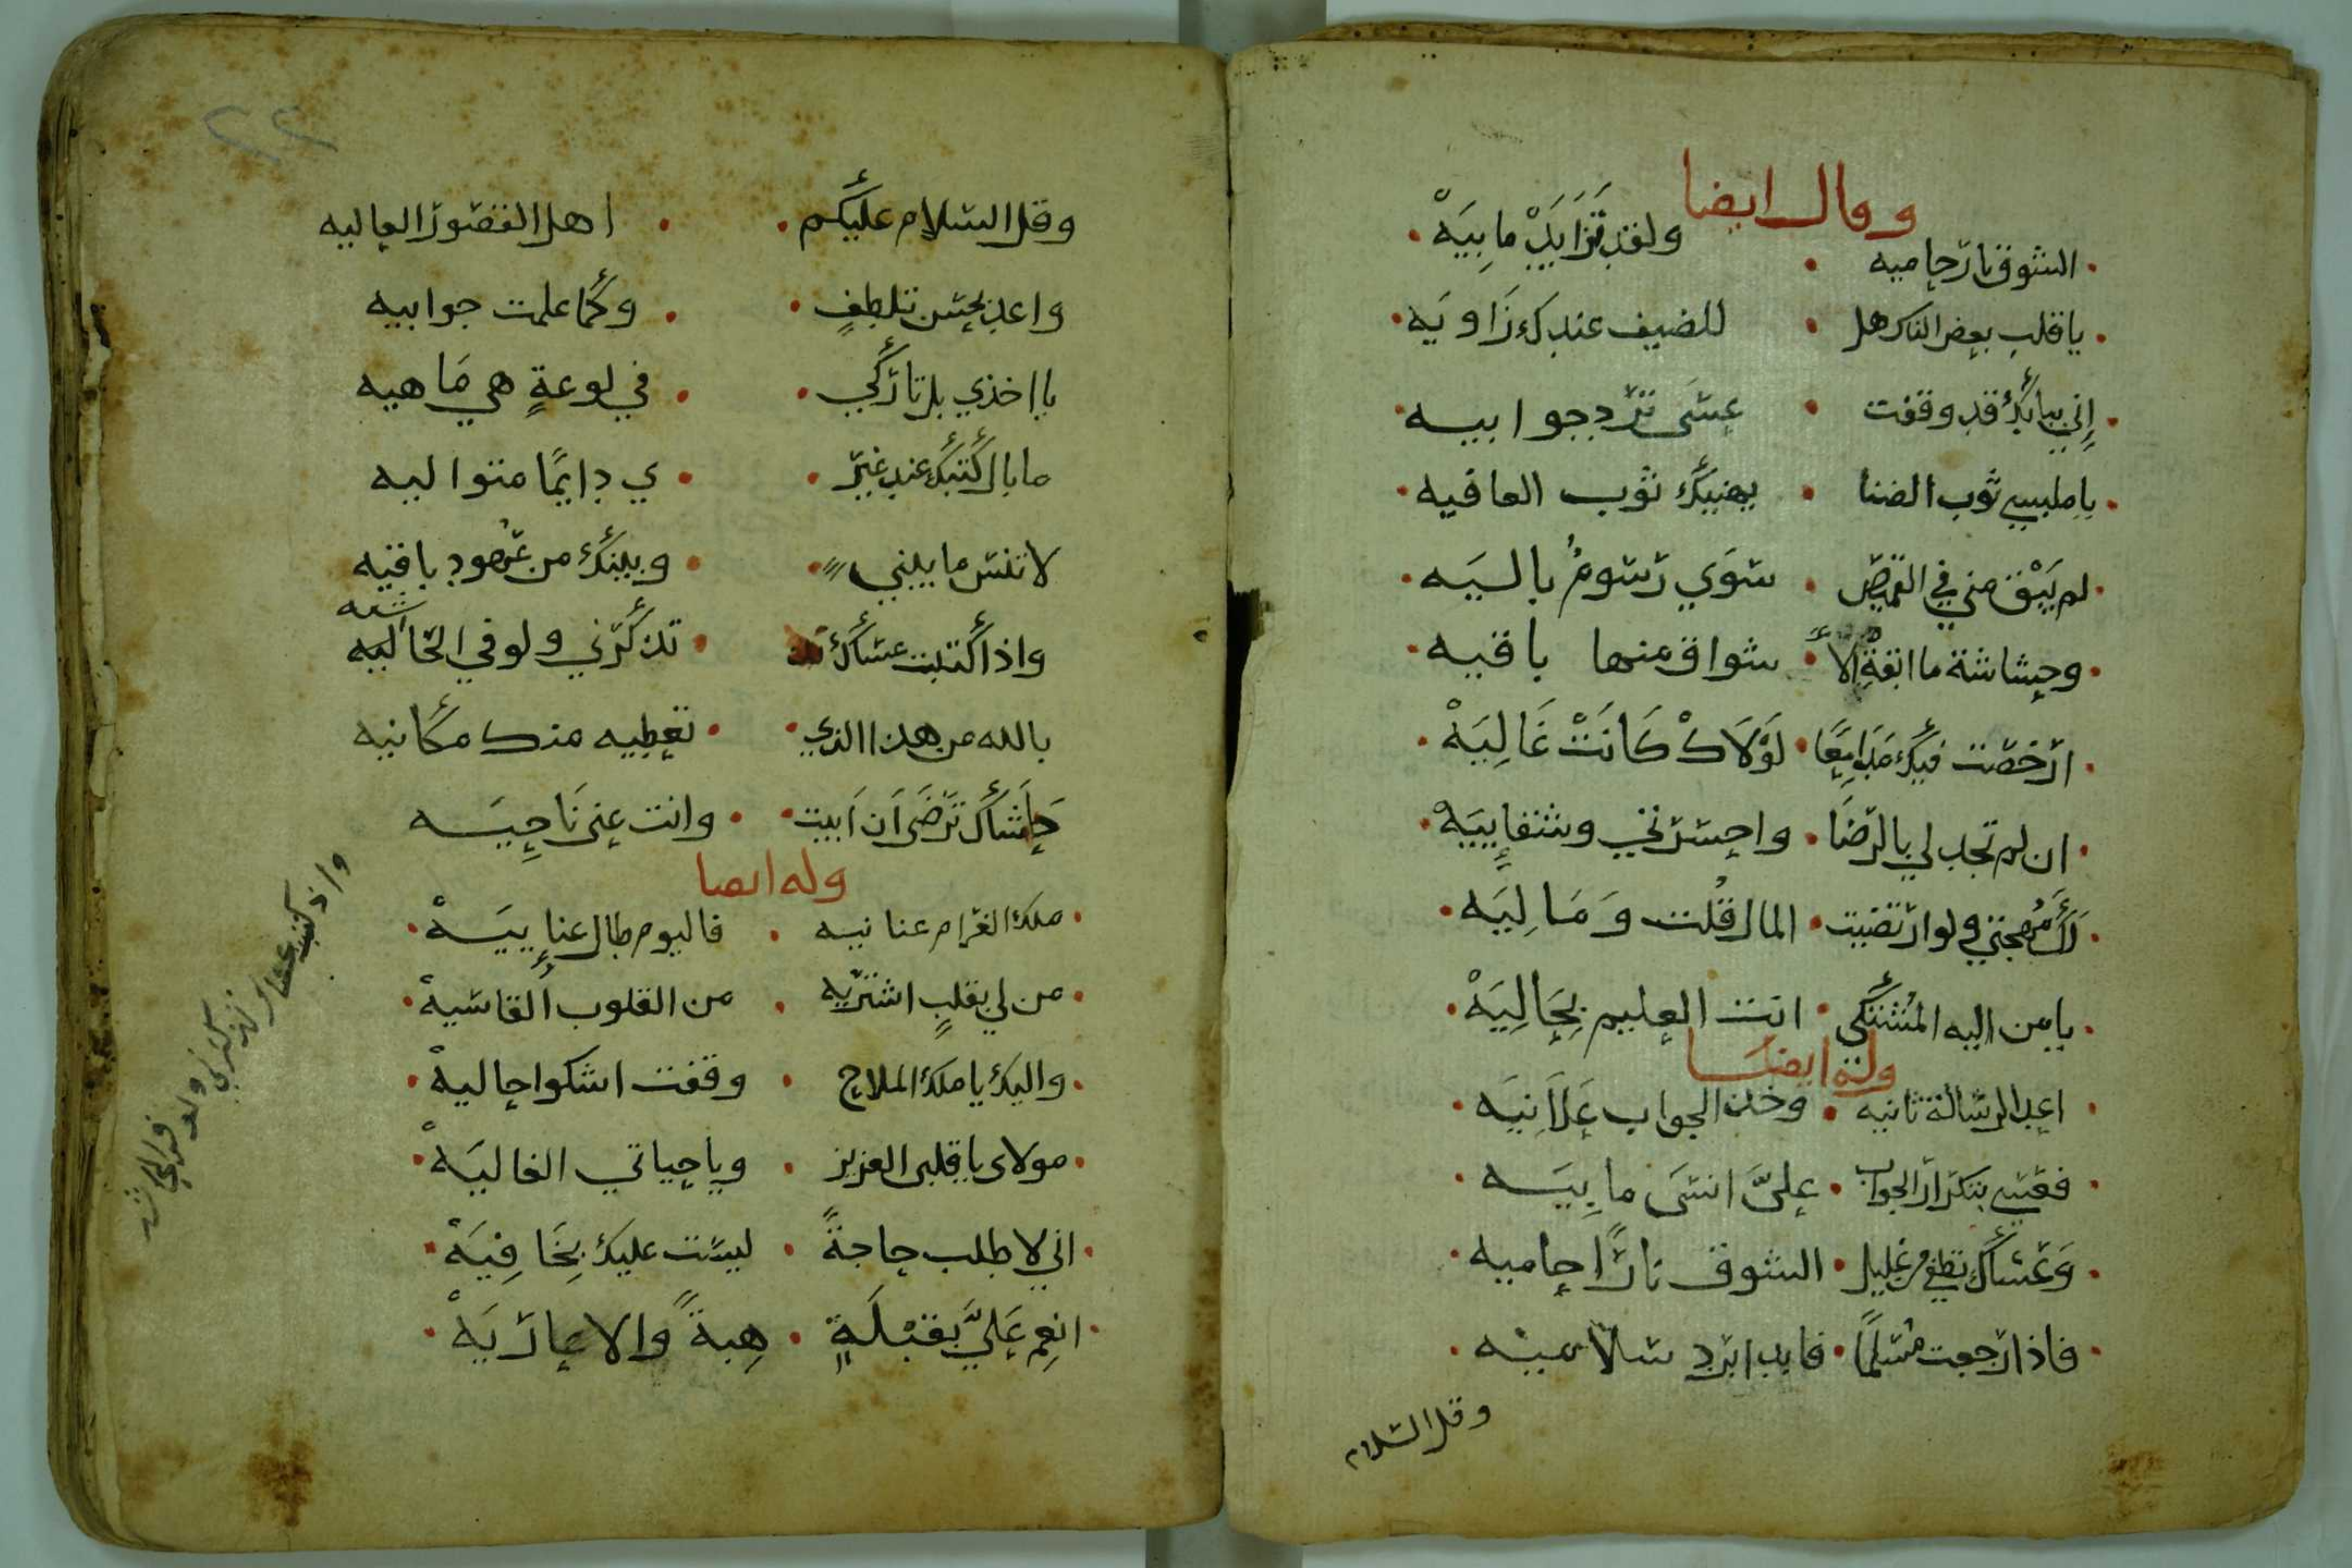 وقال ايضا
الشوق نار حاميه · ولقد تزايد ما بِيَهْ
يا قلب بعض الناس هل · للضيف عندك زَاويَه
إني ببابك قد وقفت · عسَى ترد جوابيه
يا ملبسي ثوب الضنا · يهنيك ثوب العافيه
لم يَبْق مني في القميص · سوَي رسومُ باليَه
وحشاشة ما ابقة الأ · شواق منها باقيه
ارخصت فيك مَدَامِعًا · لَوْلَاكْ كَانَتْ غَالِيَهْ
ان لم تجد لي بالرضَا · واحسرتي وشقإييَهْ
لَكَ مُهجتي ولو ارتضيت · المال قُلت وَمَالِيَه
يا من اليه المُشتكى · انت العليم بِحَالِيَهْ
وله ايضا
اعد الرسالة ثانيه · وخذ الجواب عَلَانِيَه
فقسي بتكرار الجواب · عليَّ انسَى ما بِيَه
وَعَسَاك تطفي من غليل · الشوق نارًا حاميه
فاذا رجعت مُسَلمًا · فابدا برد سلاميه
وقل السلام
٢٢
وقل السلام عليكم · اهل القصور العاليه
واعد بحسن تلطفٍ · وكما علمت جوابيه
يا اخذي بل تاركي · في لوعةٍ هي مَا هيه
ما بال كتبك عند غير · ي دايمًا متواليه
لا تنس ما بيني · وبينك من عُهود باقيه
واذا كتبت عساك · تذكرني ولو في الحاشيه
بالله من هذا الذي · تعطيه منك مكانيه
حَاشَاك ترَضَى اَن اَبيت · وانت عني نَاحِيَه
وله ايضا
ملك الغرام عنانيه · فاليوم طال عنإييَهْ
من لي بقلبٍ اشتريه · من القلوب القاسيهْ
واليك يا ملك الملاح · وقفت اشكوا حاليهْ
مولاى يا قلبى العزيز · ويا حياتي الغاليَهْ
اني لاطلب حاجةً · ليست عليك بِخَافِيَهْ
انعِم عَليَّ بقبْلَةٍ · هِبةً والا عاريَهْ
واذ كتبت عساك تذكرني ولو في الحاشيه